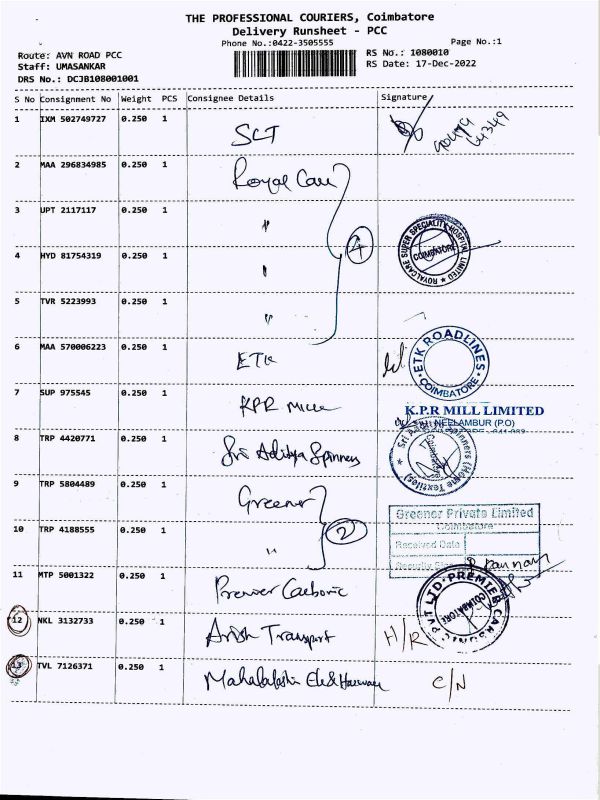 THE PROFESSIONAL COURIERS, Coimbatore
Delivery Runsheet - PCC
Phone No.:0422-3505555
Page No.:1
Route: AVN ROAD PCC
RS No.: 1080010
Staff: UMASANKAR
RS Date: 17-Dec-2022
DRS No.: DCJB108001001
S No Consignment No Weight PCS Consignee Details Signature
1 IXM 502749727 0.250 1 SCT
2 MAA 296834985 0.250 1 Royal Care
3 UPT 2117117 0.250 1 "
4 HYD 81754319 0.250 1 "
4
ROYALCARE SUPER SPECIALITY HOSPITAL LIMITED
COIMBATORE
5 TVR 5223993 0.250 1 "
6 MAA 570006223 0.250 1 ETK
ETK ROADLINES
COIMBATORE
7 SUP 975545 0.250 1 KPR Mill
K.P.R MILL LIMITED
NEELAMBUR (P.O)
8 TRP 4420771 0.250 1 Sri Aditya Spinners
9 TRP 5804489 0.250 1 Greener
Greener Private Limited
Coimbatore
10 TRP 4188555 0.250 1 "
2
Received Date
Security Sign
11 MTP 5001322 0.250 1 Premier Carbonic
PREMIER CARBONIC PVT LTD
COIMBATORE
12 NKL 3132733 0.250 1 Arish Transport H/R
13 TVL 7126371 0.250 1 C/N